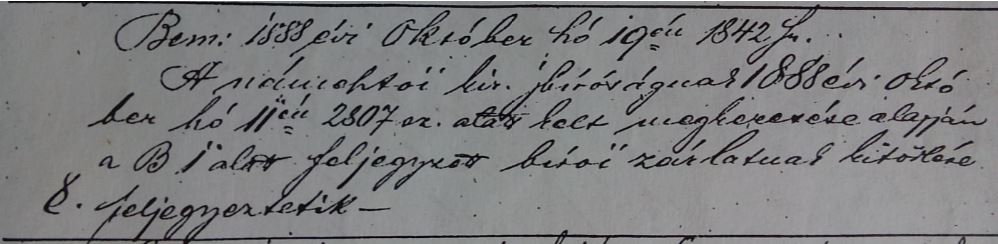 Bem: 1888 évi Október hó 19én 1842 sz.
A németujvári kir. jbíróságnak 1888 évi októ
ber hó 11én 2807 sz. alatt kelt megkeresése alapján
a B 1 alatt feljegyzett bírói zárlatnak kitörlése
8. feljegyeztetik —